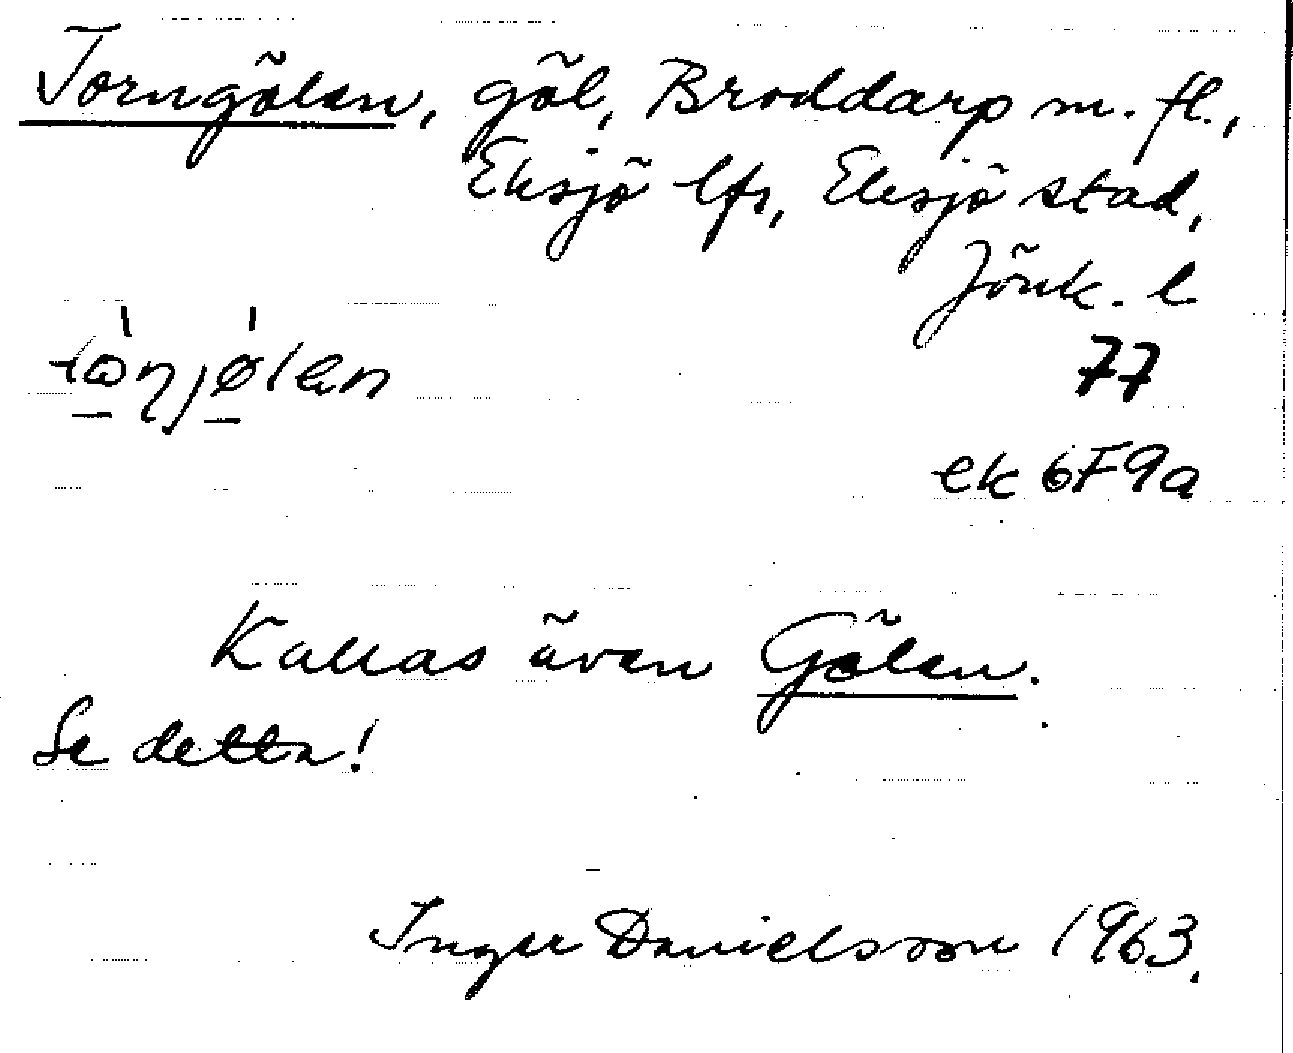 Torngölen, göl, Broddarp m. fl.,
Eksjö lfs, Eksjö stad,
Jönk. l
77
ek 6F9a
Kallas även Gölen.
Se detta!
Inger Danielsson 1963.